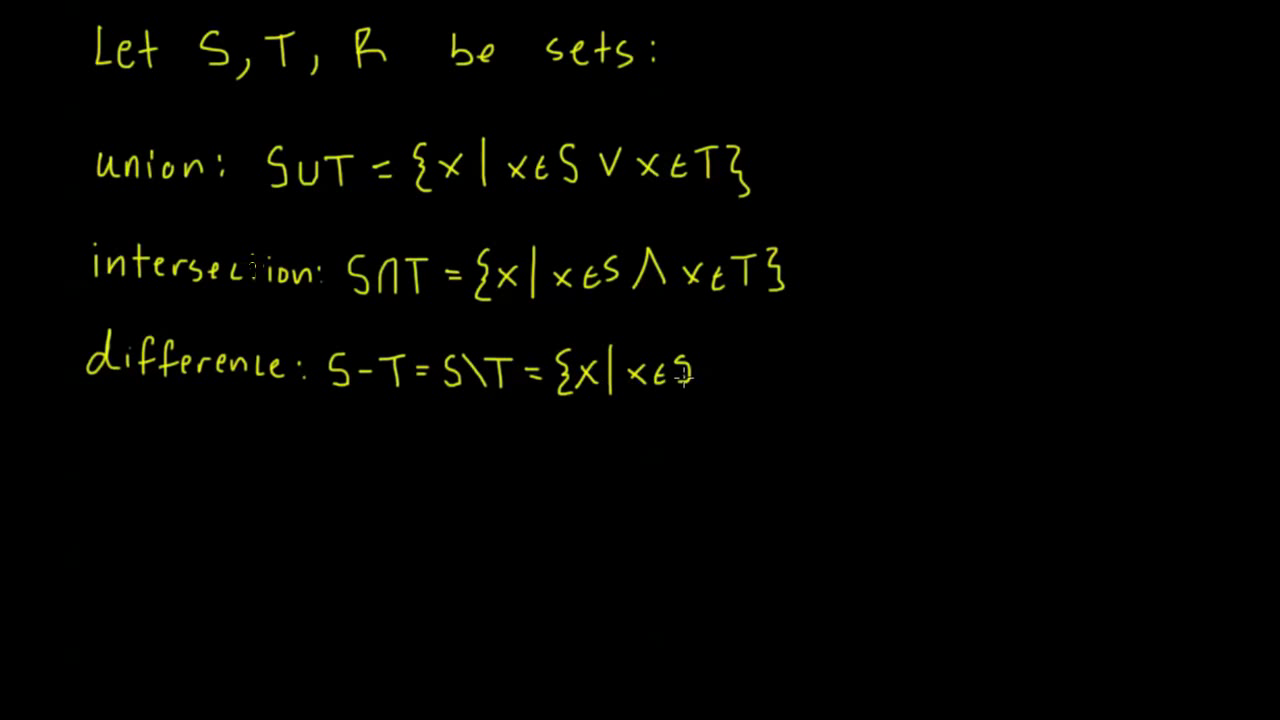 Let S, T, R be sets:
union: S∪T = {x | x∈S ∨ x∈T}
intersection: S∩T = {x | x∈S ∧ x∈T}
difference: S-T = S\T = {x | x∈S